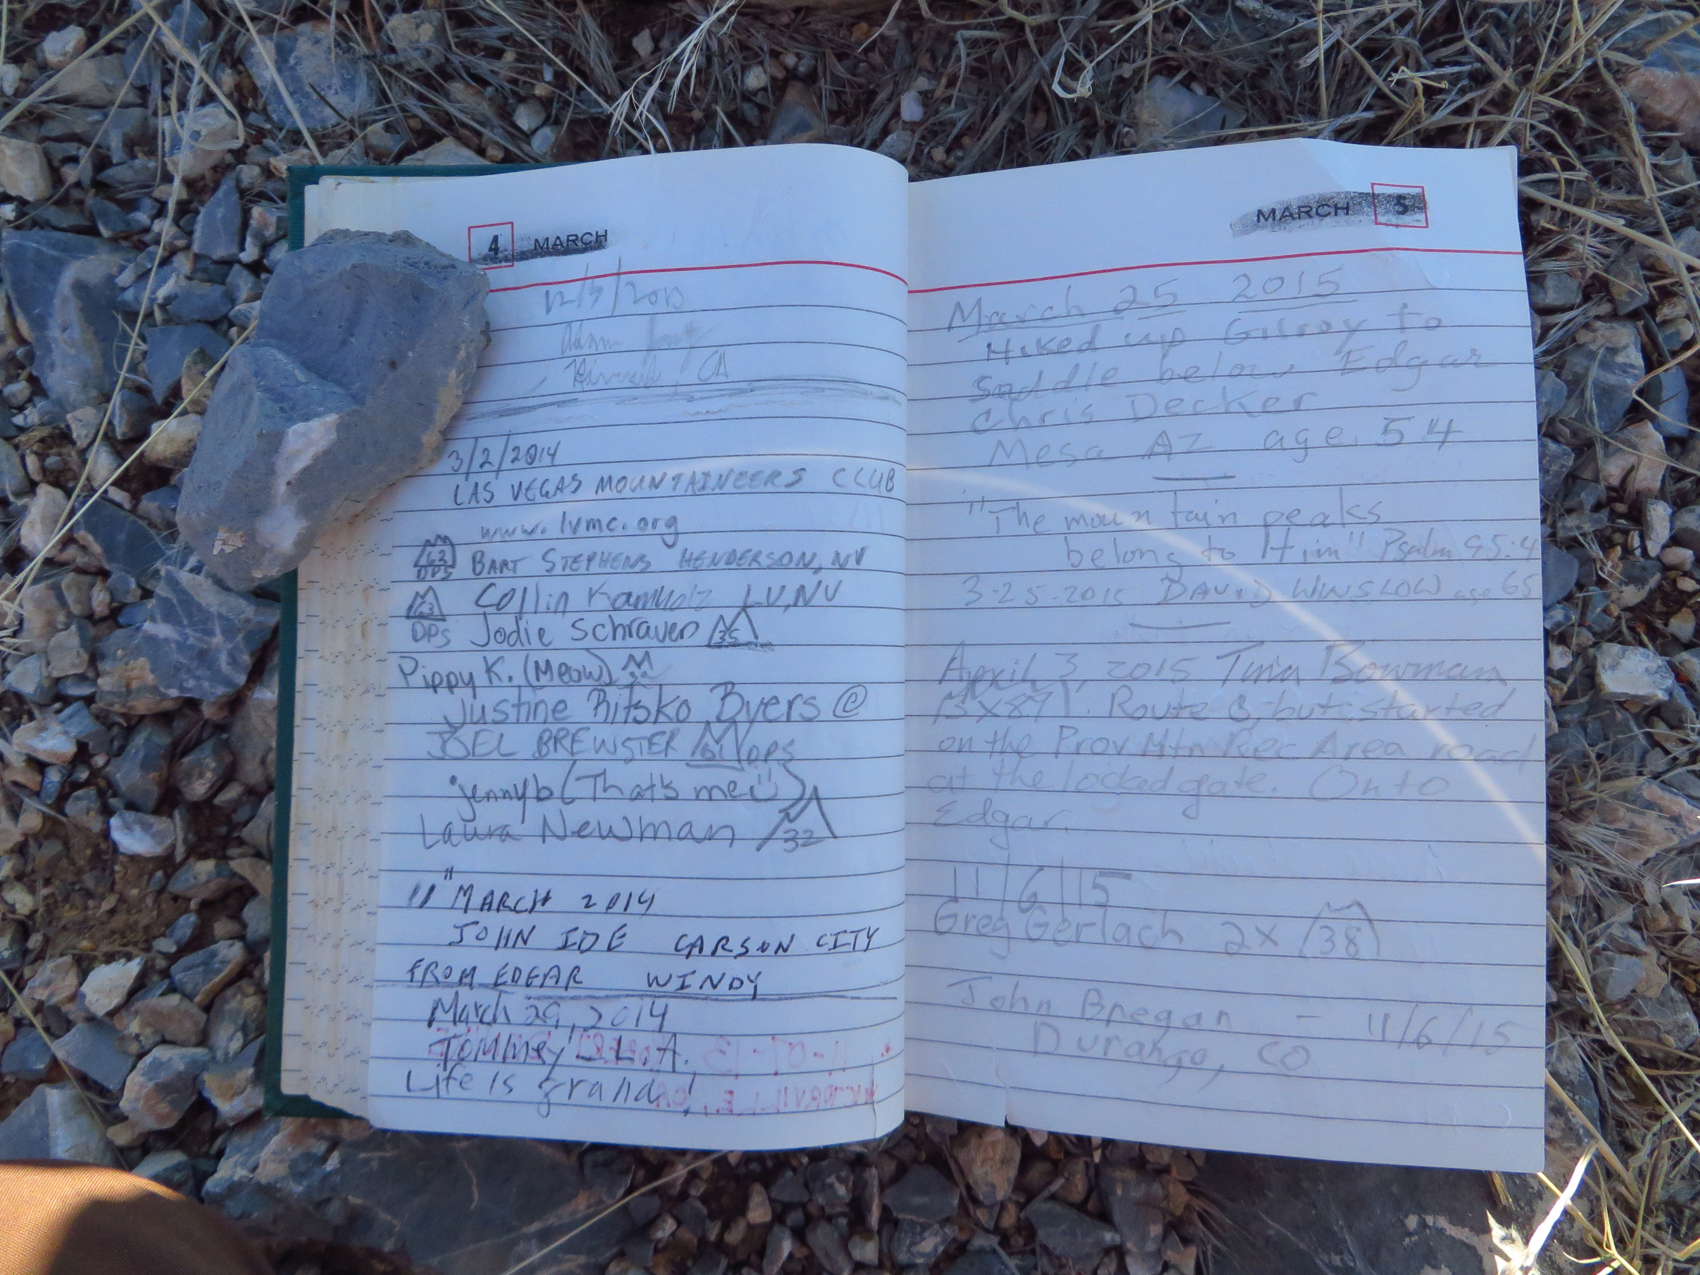 4 MARCH
12/7/2013
CA
3/2/2014
LAS VEGAS MOUNTAINEERS CLUB
www.lvmc.org
62 DPS BART STEPHENS HENDERSON, NV
63 Collin Kamholz LV, NV
DPS Jodie Schraven 35
Pippy K. (Meow)
Justine Ritsko Byers @
JOEL BREWSTER 61 DPS
jennyb (That's me :)
Laura Newman 32
11 MARCH 2014
JOHN IDE CARSON CITY
FROM EDGAR WINDY
March 29, 2014
Tommey L.A.
Life is grand!
MARCH 5
March 25 2015
Hiked up Gilroy to
saddle below Edgar
Chris Decker
Mesa AZ age 54
"The mountain peaks
belong to Him" Psalm 95:4
3-25-2015 DAVID WINSLOW age 65
April 3, 2015 Tina Bowman
Route B, but started
on the Prov Mtn Rec Area road
at the locked gate. On to
Edgar.
11/6/15
Greg Gerlach 2X 38
John Bregar - 11/6/15
Durango, CO